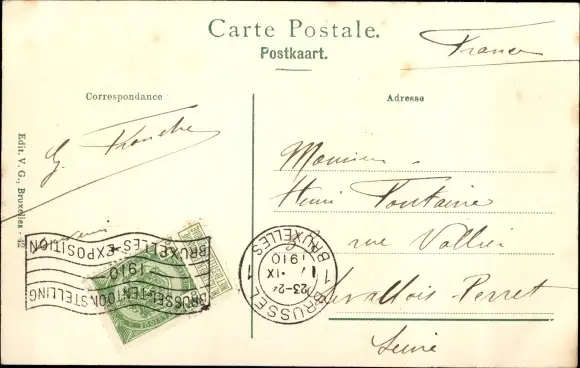 Carte Postale.
Postkaart.
France
Correspondance
Adresse
Edit. V. G., Bruxelles - 42
G. Franche
Monsieur
Henri Fontaine
rue Vallier
Levallois-Perret
Seine
BRUXELLES-EXPOSITION
1910
BRUSSEL-TENTOONSTELLING
BRUXELLES
1910
IX
23-24
1 BRUSSEL 1